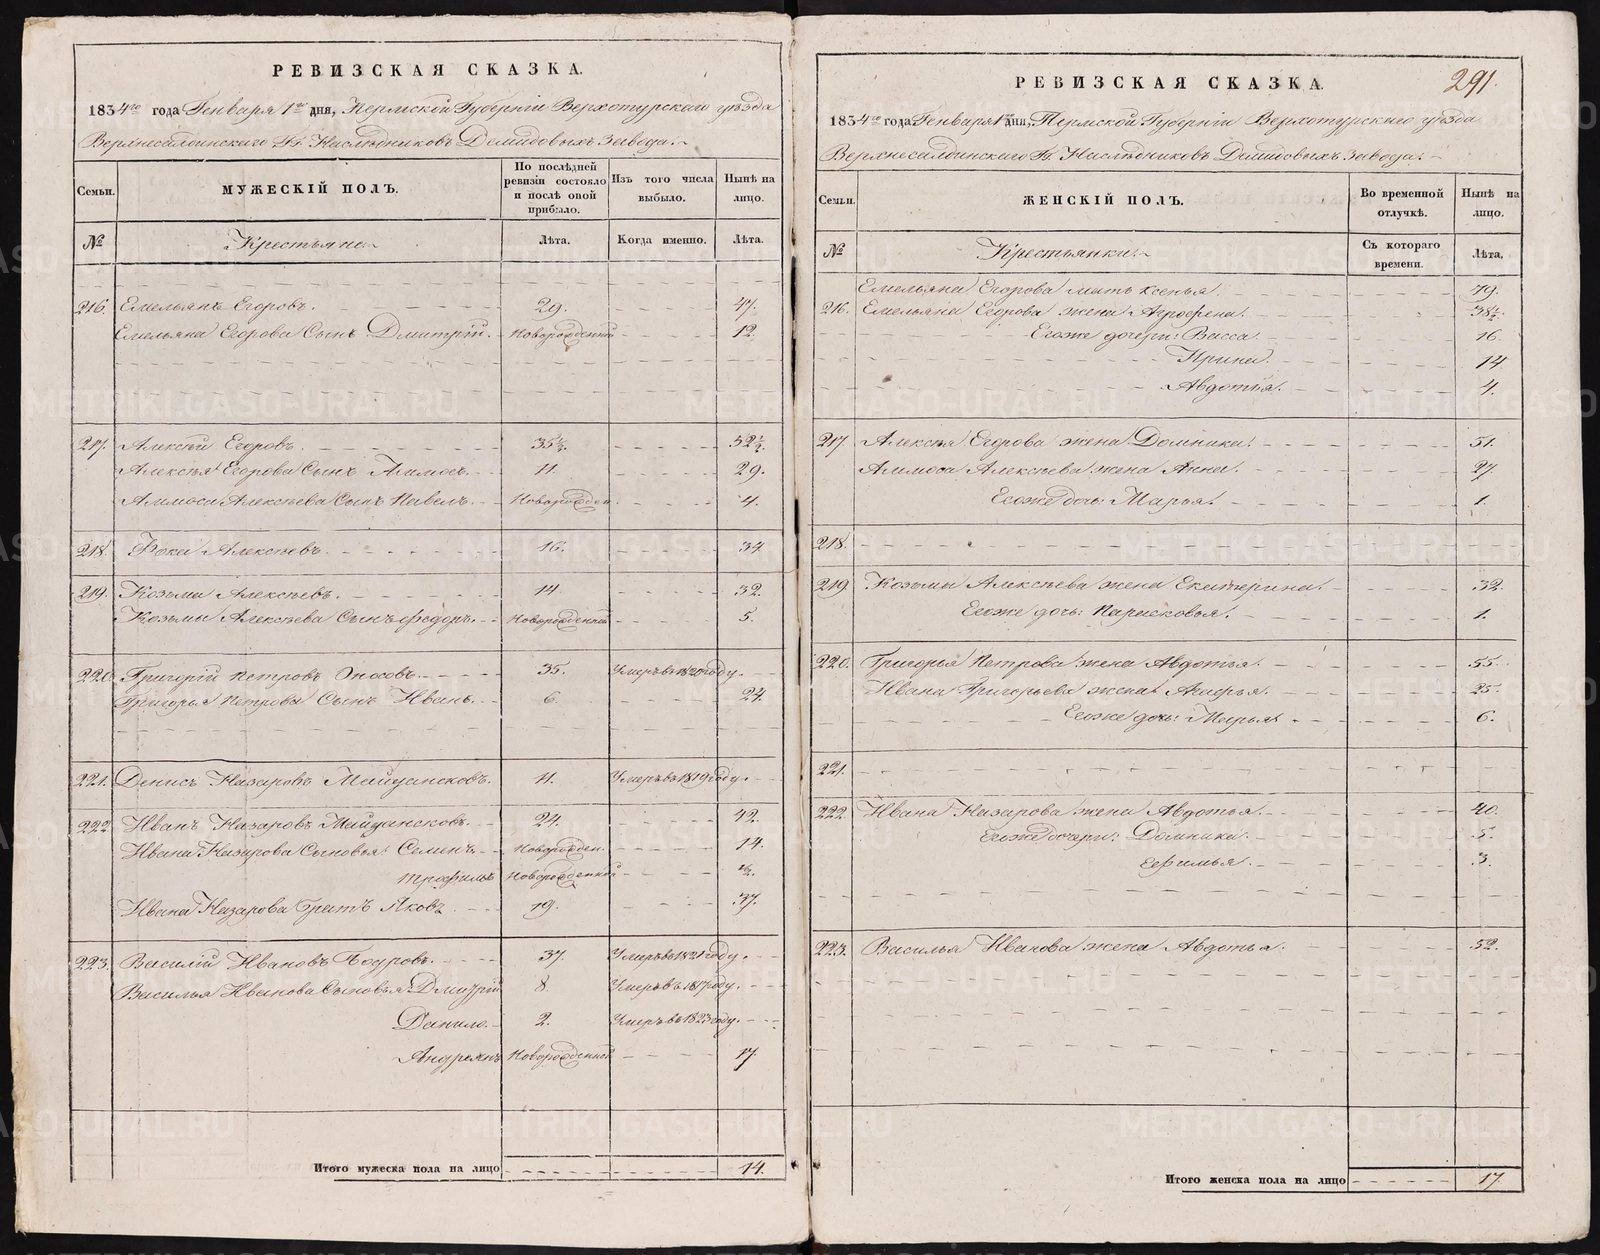 РЕВИЗСКАЯ СКАЗКА.
1834го года Генваря 1го дня, Пермской Губернiи Верхотурскаго уѣзда
Верхнесалдинскаго Гг. Наслѣдниковъ Демидовыхъ Завода.
Семьи. МУЖЕСКIЙ ПОЛЪ. По послѣдней ревизiи состояло и послѣ оной прибыло. Изъ того числа выбыло. Нынѣ на лицо.
№ Крестьяне Лѣта. Когда именно. Лѣта.
216. Емельянъ Егоровъ. 29. 47.
Емельяна Егорова Сынъ Дмитрiй. Новорожденный 12.
217. Алексѣй Егоровъ. 35½. 52½.
Алексѣя Егорова Сынъ 11. 29.
Алексѣева Сынъ Павелъ. Новорожден. 4.
218. Фока Алексѣевъ. 16. 34.
219. Козьма Алексѣевъ. 14. 32.
Козьмы Алексѣева Сынъ Федоръ. Новорожденный 5.
220. Григорiй Петровъ 35. Умеръ въ 1820 году.
Григорья Петрова Сынъ Иванъ. 6. 24.
221. Денисъ Назаровъ Майдансковъ. 11. Умеръ въ 1819 году.
222. Иванъ Назаровъ Майдансковъ. 24. 42.
Ивана Назарова Сыновья: Семенъ. Новорожден. 14.
Трофимъ Новорожденный ½.
Ивана Назарова Братъ Яковъ 19. 37.
223. Василiй Ивановъ 37. Умеръ въ 1821 году.
Василья Иванова Сыновья: Дмитрiй 8. Умеръ въ 1817 году.
Данило. 2. Умеръ въ 1823 году.
Андреянъ Новорожденной 17.
Итого мужеска пола на лицо 14.
291.
РЕВИЗСКАЯ СКАЗКА.
1834го года Генваря 1го дня, Пермской Губернiи Верхотурскаго уѣзда
Верхнесалдинскаго Гг. Наслѣдниковъ Демидовыхъ Завода.
Семьи. ЖЕНСКIЙ ПОЛЪ. Во временной отлучкѣ. Нынѣ на лицо.
№ Крестьянки. Съ котораго времени. Лѣта.
Емельяна Егорова мать Ксенья. 79.
216. Емельяна Егорова жена Агрофена. 38½.
Егоже дочери: Васса. 16.
Ирина. 14
Авдотья. 4.
217. Алексѣя Егорова жена Домника. 51.
Алексѣева жена Анна. 27.
Егоже дочь: Марья. 1.
218.
219. Козьмы Алексѣева жена Екатерина. 32.
Егоже дочь: Парасковья. 1.
220. Григорья Петрова жена Авдотья. 55.
Ивана Григорьева жена 25.
Егоже дочь: Марья. 6.
221.
222. Ивана Назарова жена Авдотья. 40.
Егоже дочери: Домника. 5.
Ефимья. 3.
223. Василья Иванова жена Авдотья. 52.
Итого женска пола на лицо 17.
METRIKI.GASO-URAL.RU